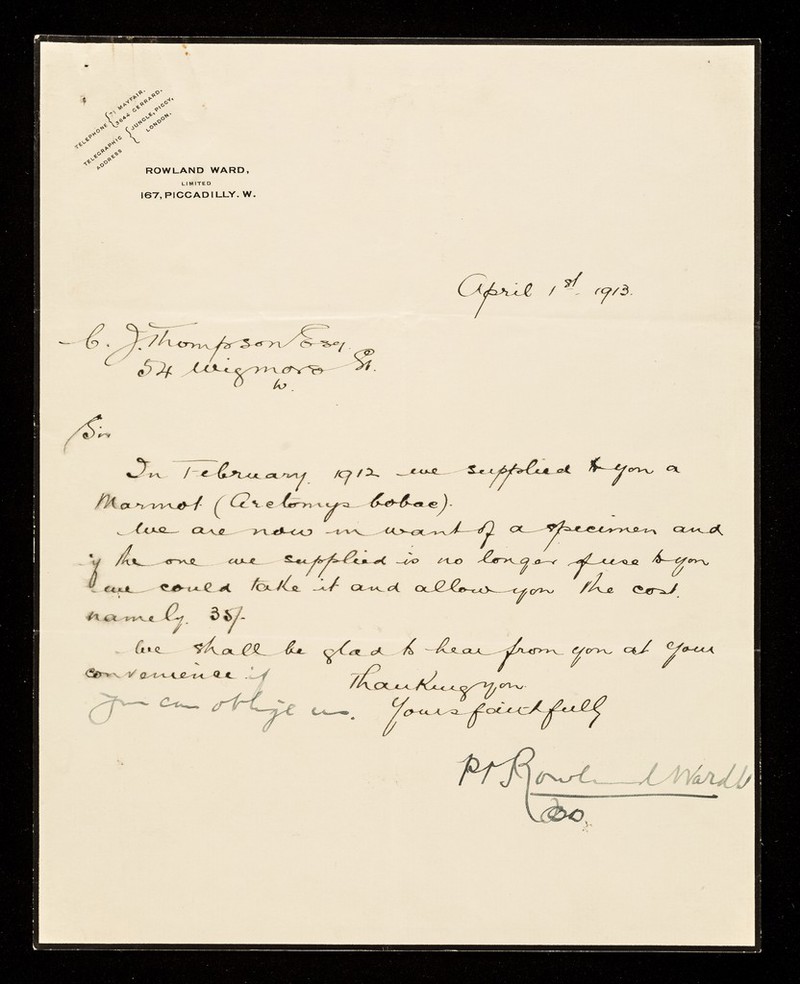 TELEPHONE { 71 MAYFAIR.
3644 GERRARD.
TELEGRAPHIC ADDRESS { JUNGLE, PICCY, LONDON.
ROWLAND WARD,
LIMITED
167, PICCADILLY. W.
April 1st 1913.
C. J. Thompson Esq
54 Wigmore St.
W.
Sir
In February 1912 we supplied to you a
Marmot (Arctomys bobac).
We are now in want of a specimen and
if the one we supplied is no longer of use to you
we could take it and allow you the cost.
namely. 35/-
We shall be glad to hear from you at your
convenience if Thanking you
you can oblige us. Yours faithfully
Rowland Ward